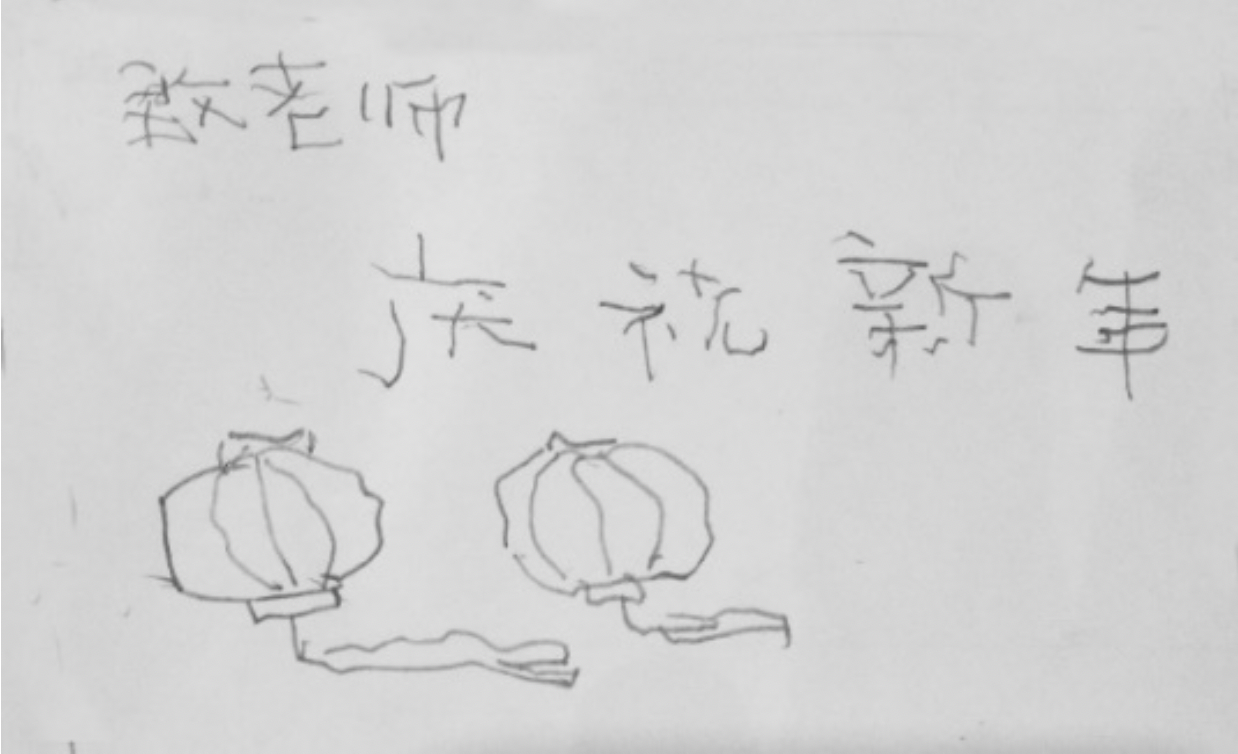 老师
庆祝新年